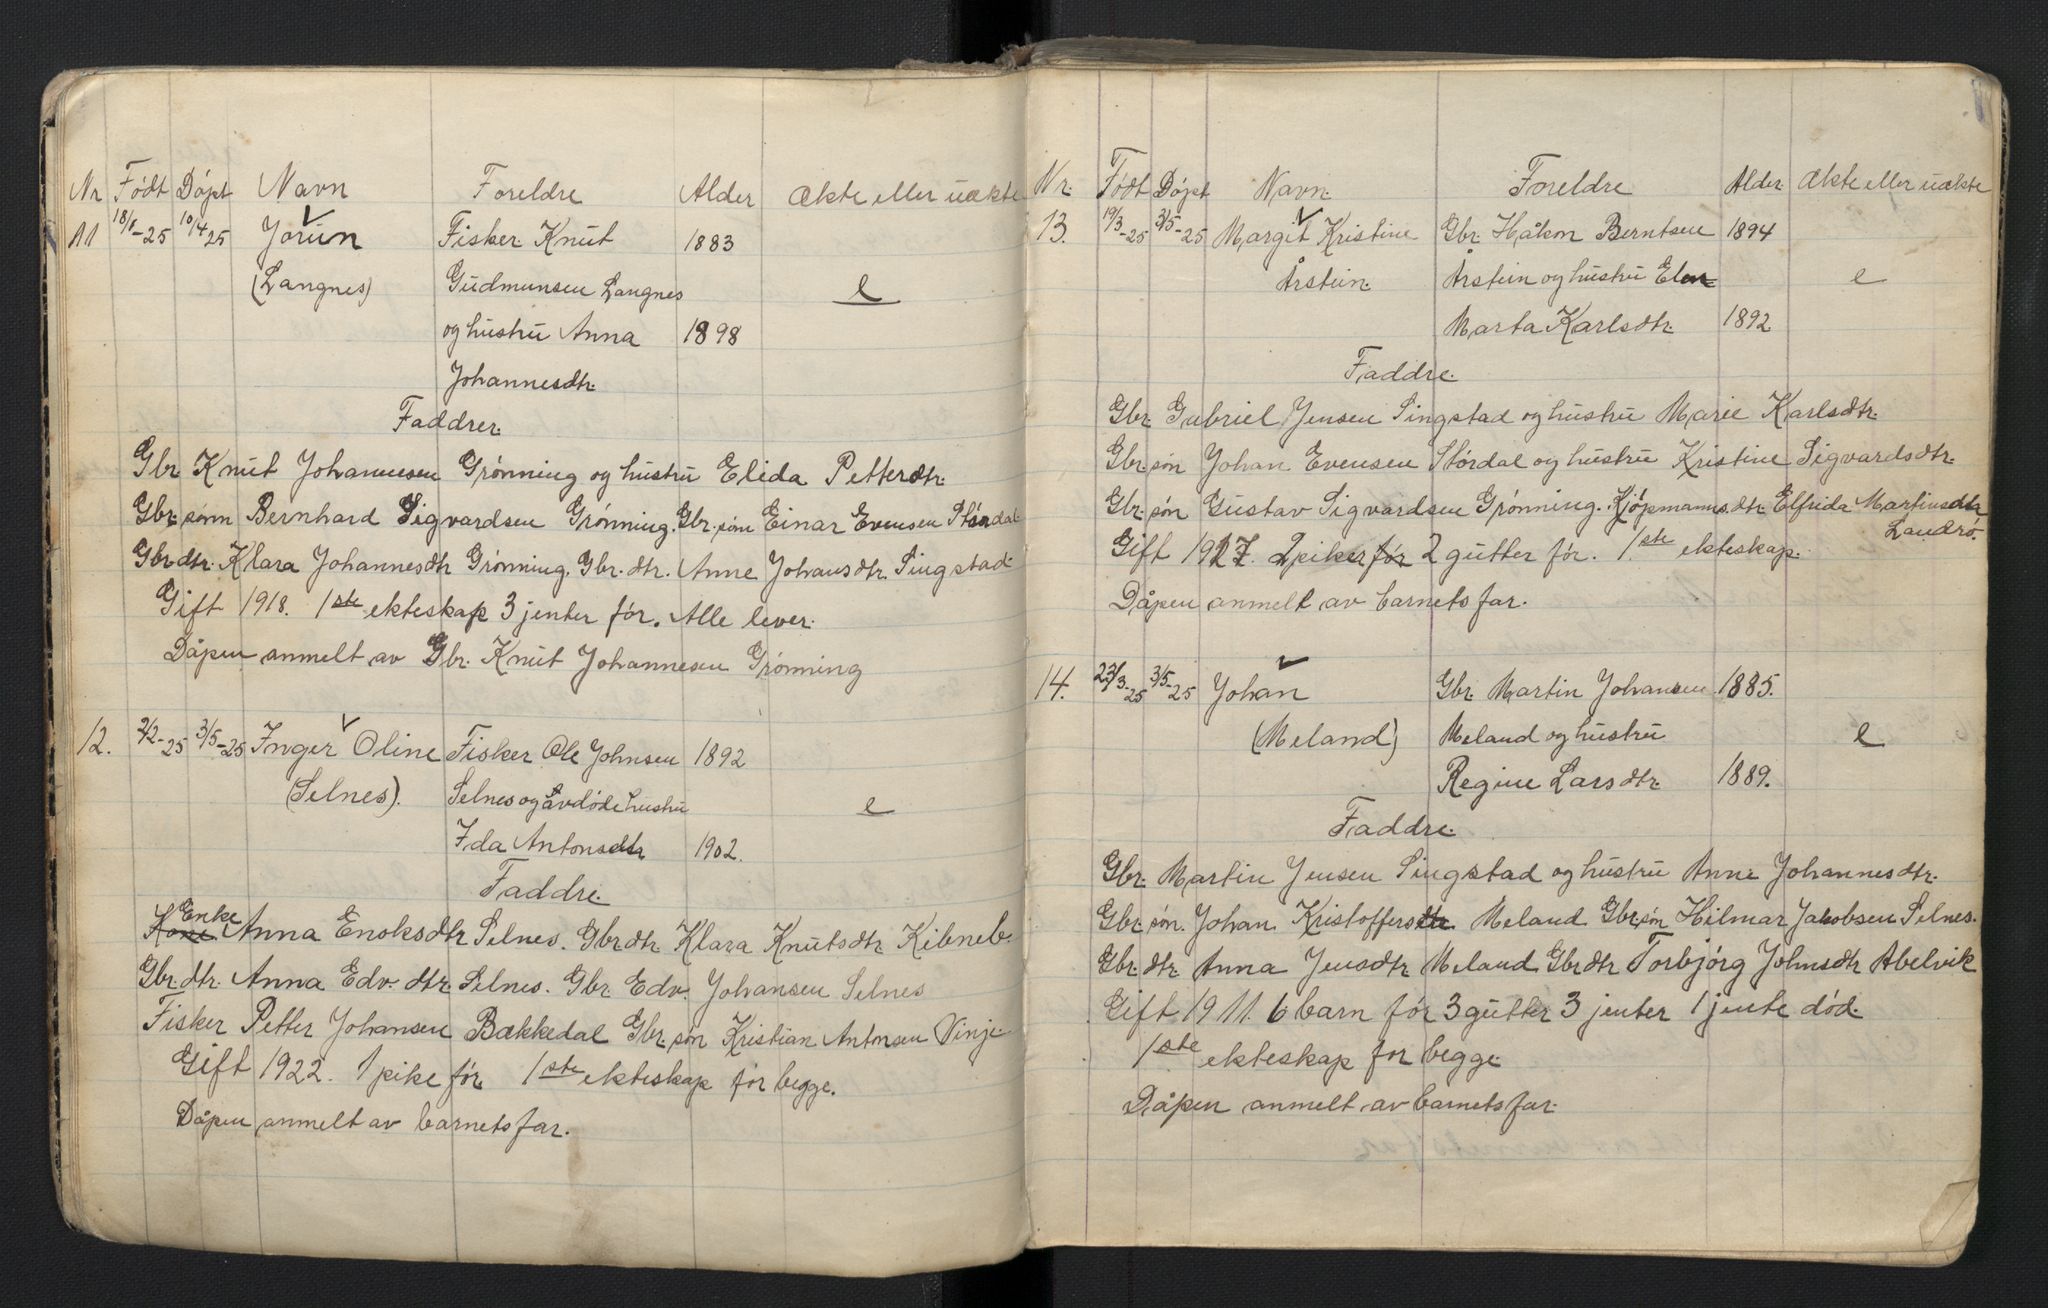 Nr. Født Døpt Navn Foreldre Alder Ekte eller uekte
11 18/1-25 10/4 25 Jorun Fisker Knut 1883
(Langnes) Gudmunsen Langnes e
og hustru Anna 1898
Johannesdtr.
Faddrer.
Gbr. Knut Johannesen Grønning og hustru Elida Petterdtr.
Gbr. sønn Bernhard Sigvardsen Grønning. Gbr. søn Einar Evensen Størdal
Gbr dtr. Klara Johannesdtr Grønning. Gbr. dtr. Anne Johansdtr. Singstad.
Gift 1918. 1ste ekteskap 3 jenter før. Alle lever.
Dåpen anmelt av Gbr. Knut Johannesen Grønning
12. 2/2-25 3/5-25 Inger Oline Fisker Ole Johnsen 1892
(Selnes). Selnes og avdøde hustru e
Ida Antonsdtr 1902.
Faddre.
Enke
Kone Anna Enoksdtr Selnes. Gbr dtr. Klara Knutsdtr Kibneb.
Gbr. dtr. Anna Edv. dtr. Selnes. Gbr Edv. Johansen Selnes
Fisker Petter Johansen Bækkedal Gbr. søn Kristian Antonsen Vinje
Gift 1922. 1 pike før. 1ste ekteskap før begge.
Dåpen anmelt av barnets far.
Nr. Født Døpt Navn. Foreldre Alder Ekte eller uekte
13. 19/3-25 3/5-25 Margit Kristine Gbr. Håkon Berntsen 1894
Årstein. Årstein og hustru Elen e
Marta Karlsdtr. 1892
Faddre.
Gbr. Gubriel Jensen Singstad og hustru Marie Karlsdtr.
Gbr. søn Johan Evensen Stórdal og hustru Kristine Sigvardsdtr.
Gbr. søn Gustav Sigvardsen Grønning. Kjøpmanns. dtr. Elfrida Martinsdtr
Landrø.
Gift 1917. 2 piker før 2 gutter før. 1ste ekteskap.
Dåpen anmelt av barnets far.
14. 23/3-25 3/5-25 Johan Gbr. Martin Johansen 1885.
(Meland) Meland og hustru e
Regine Larsdtr. 1889.
Faddre.
Gbr. Martin Jensen Singstad og hustru Anne Johannesdtr.
Gbr. søn. Johan Kristoffersen Meland Gbr. søn Hilmar Jakobsen Selnes.
Gbr. dtr. Anna Jensdtr Meland Gbr dtr Torbjørg Johnsdtr Abelvik
Gift 1911. 6 barn før 3 gutter 3 jenter 1 jente død.
1ste ekteskap for begge.
Dåpen anmelt av barnets far.